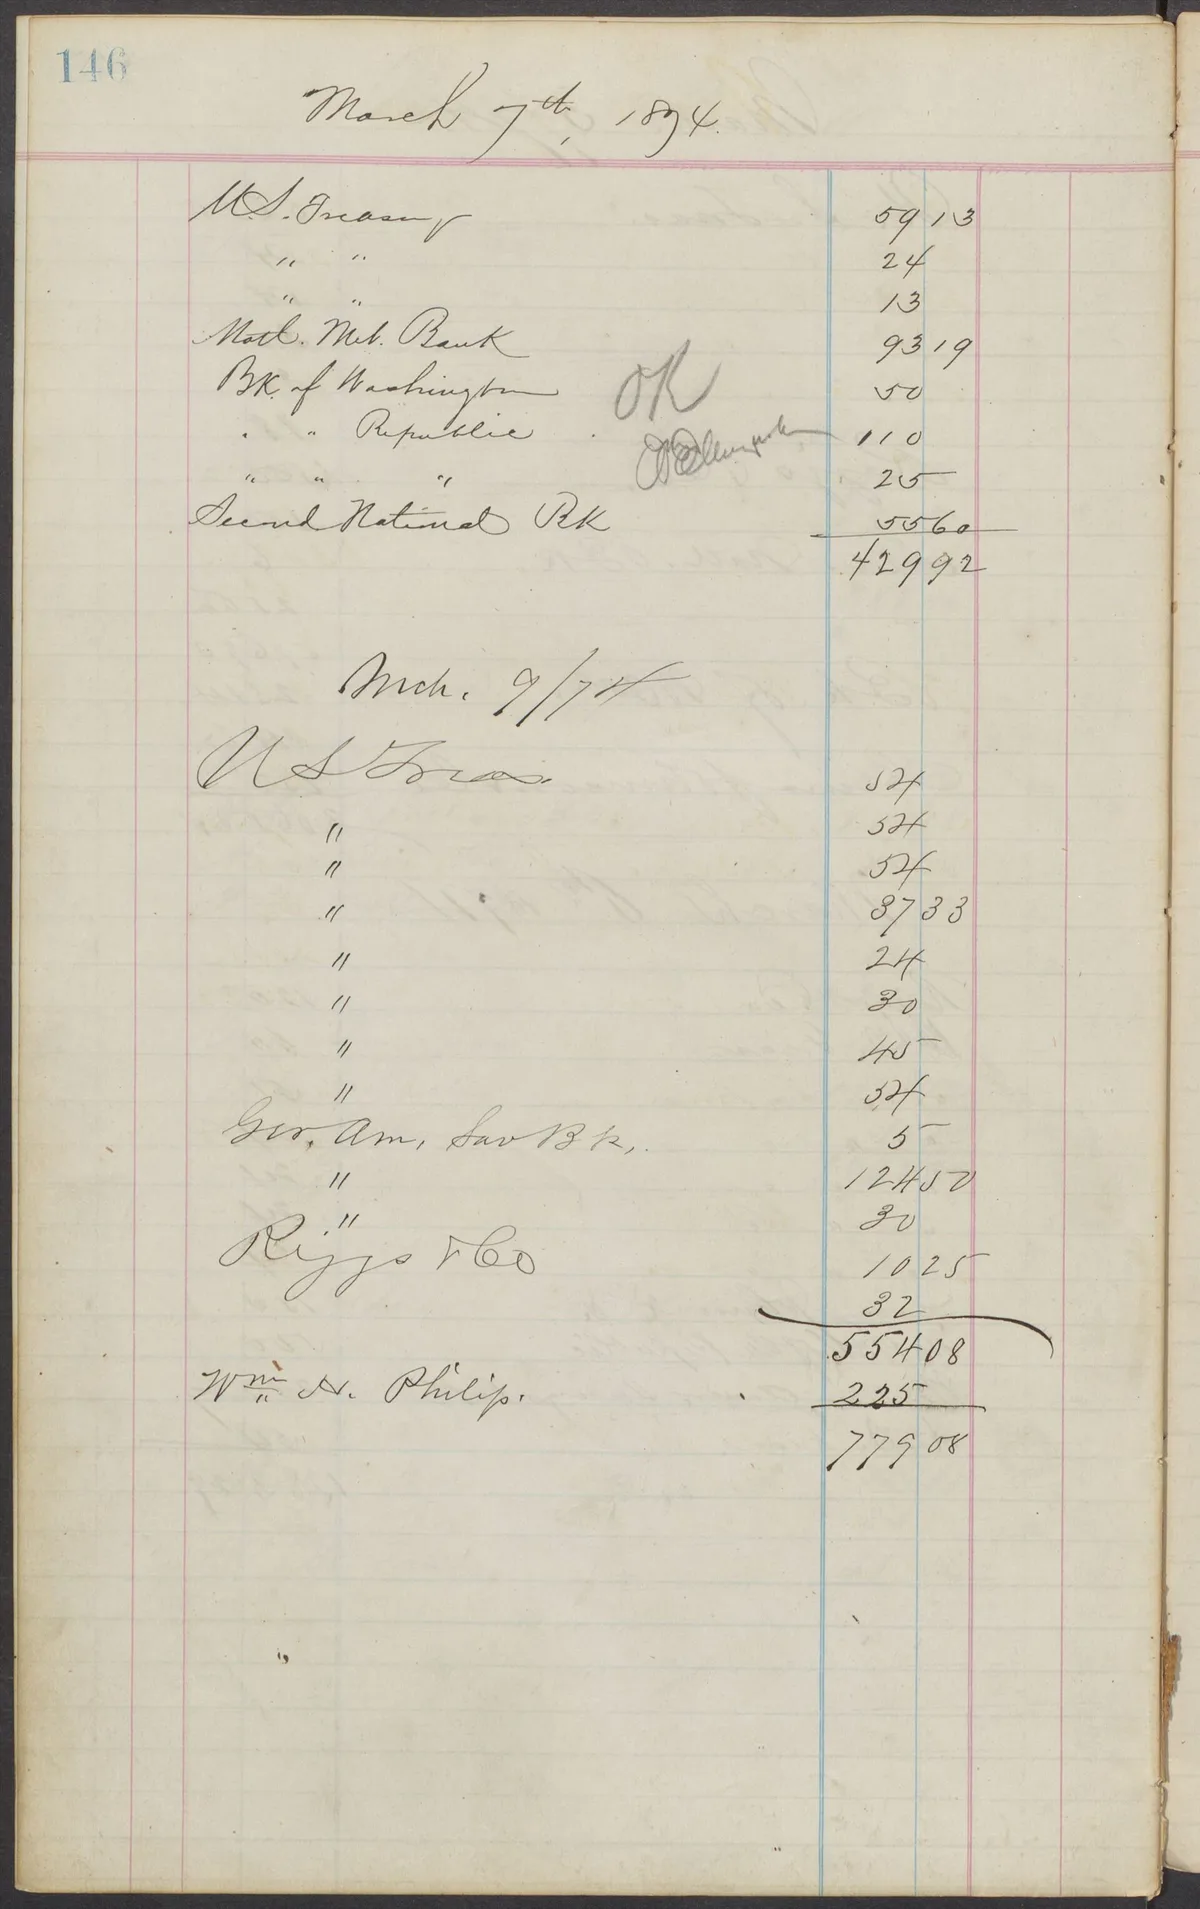 146
March 7th, 1874.
U.S. Treasury 59 13
" " 24
" " 13
Natl. Met. Bank 93 19
BK. of Washington 50
OK
" " Republic 110
" " " 25
Second National BK 55 60
429 92
Mch. 9/74
U S Treas. 54
" 54
" 54
" 37 33
" 24
" 30
" 45
" 54
Ger. Am. Sav Bk. 5
" 124 50
" 30
Riggs & Co 10 25
32
554 08
Wm H. Philip. 225
779 08